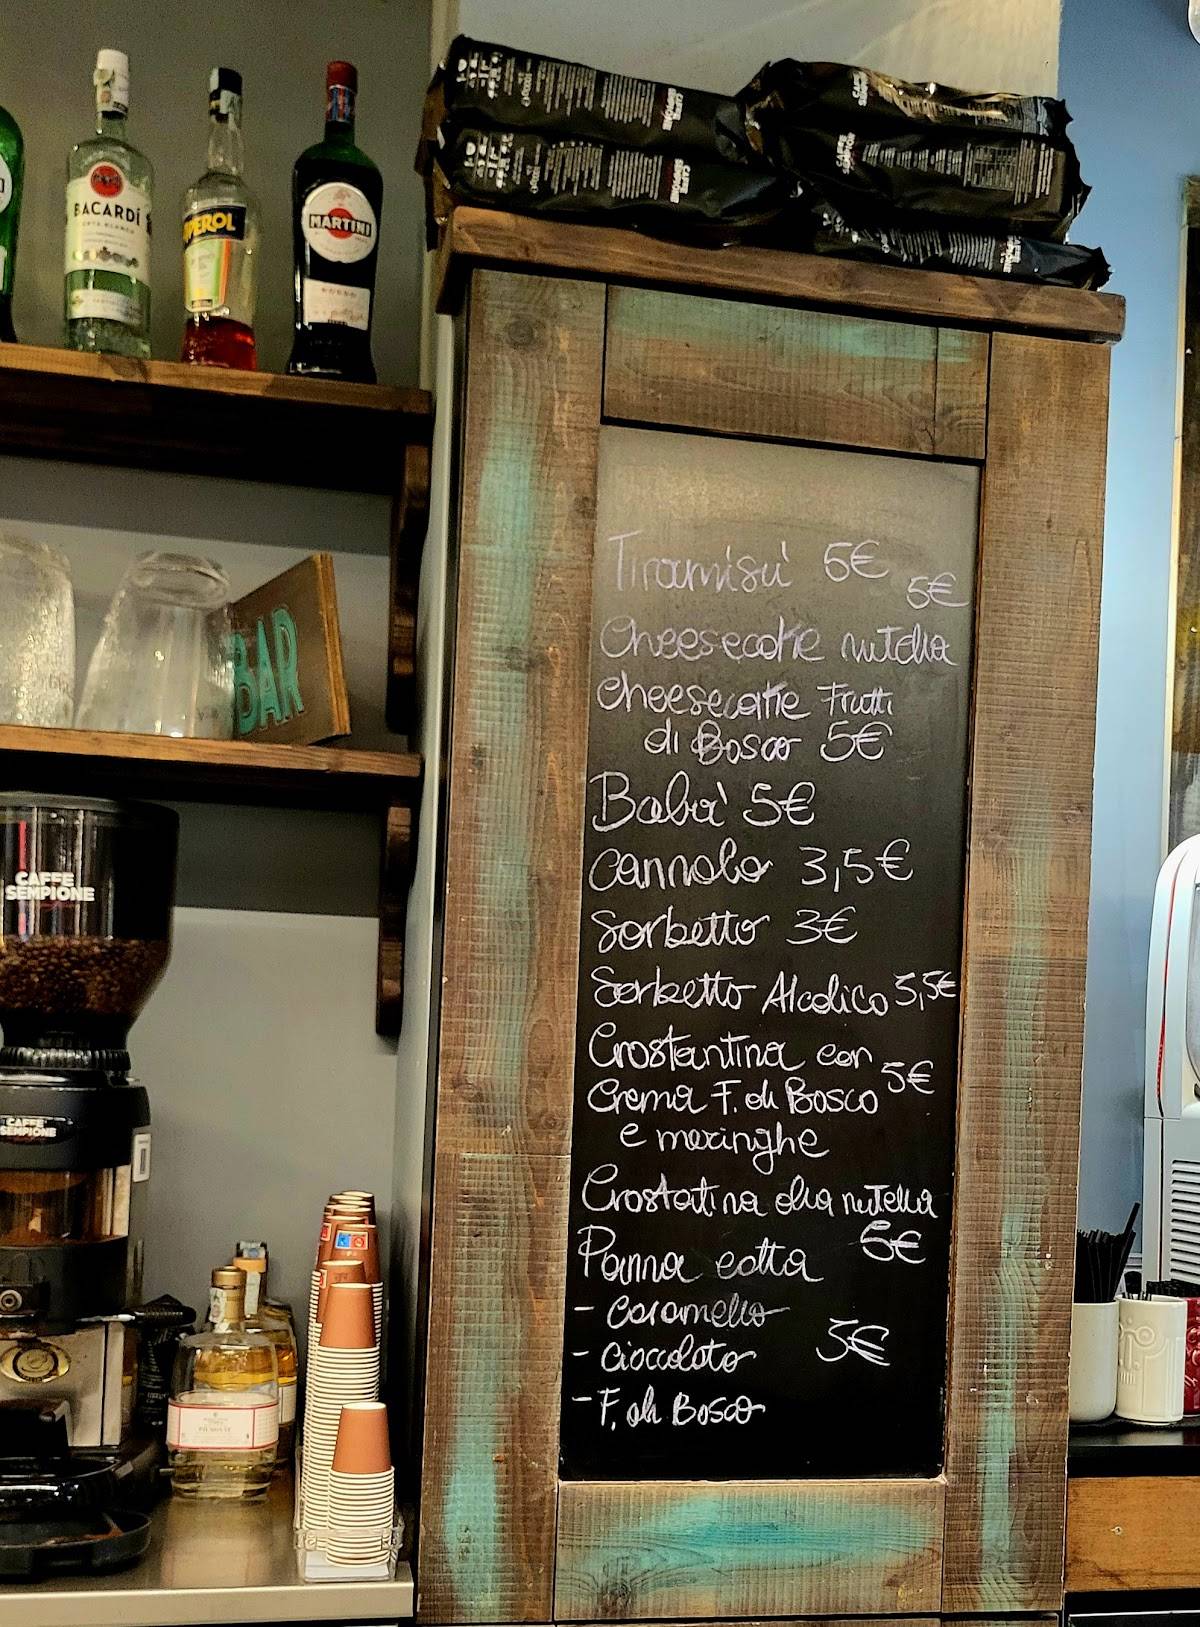 BACARDÍ
APEROL
MARTINI
BAR
CAFFÈ
SEMPIONE
CAFFÈ
SEMPIONE
Tiramisù 5€
5€
Cheesecake nutella
Cheesecake Frutti
di Bosco 5€
Babà 5€
Cannolo 3,5€
Sorbetto 3€
Sorbetto Alcolico 3,5€
Crostantina con
Crema F. di Bosco 5€
e meringhe
Crostatina alla nutella
Panna cotta 5€
- Caramello
- Cioccolato 5€
- F. di Bosco